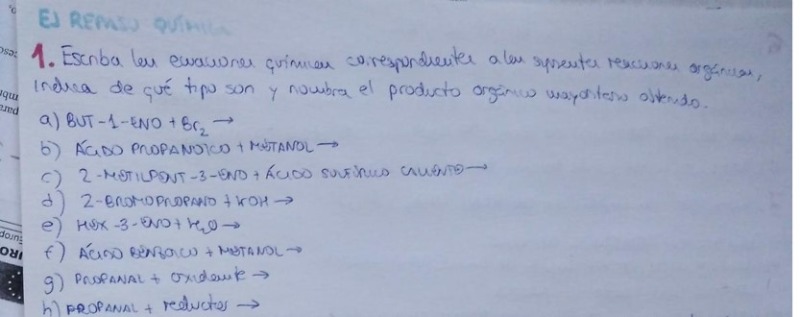 EJ REPASO QUÍMICA
1. Escriba las ecuaciones químicas correspondientes a las siguientes reacciones orgánicas,
indica de qué tipo son y nombra el producto orgánico mayoritario obtenido.
a) BUT-1-ENO + Br₂ →
b) ÁCIDO PROPANOICO + METANOL →
c) 2-METILPENT-3-ENO + ÁCIDO SULFÚRICO CALIENTE →
d) 2-BROMOPROPANO + KOH →
e) HEX-3-ENO + H₂O →
f) ÁCIDO BENZOICO + METANOL →
g) PROPANAL + oxidante →
h) PROPANAL + reductor →